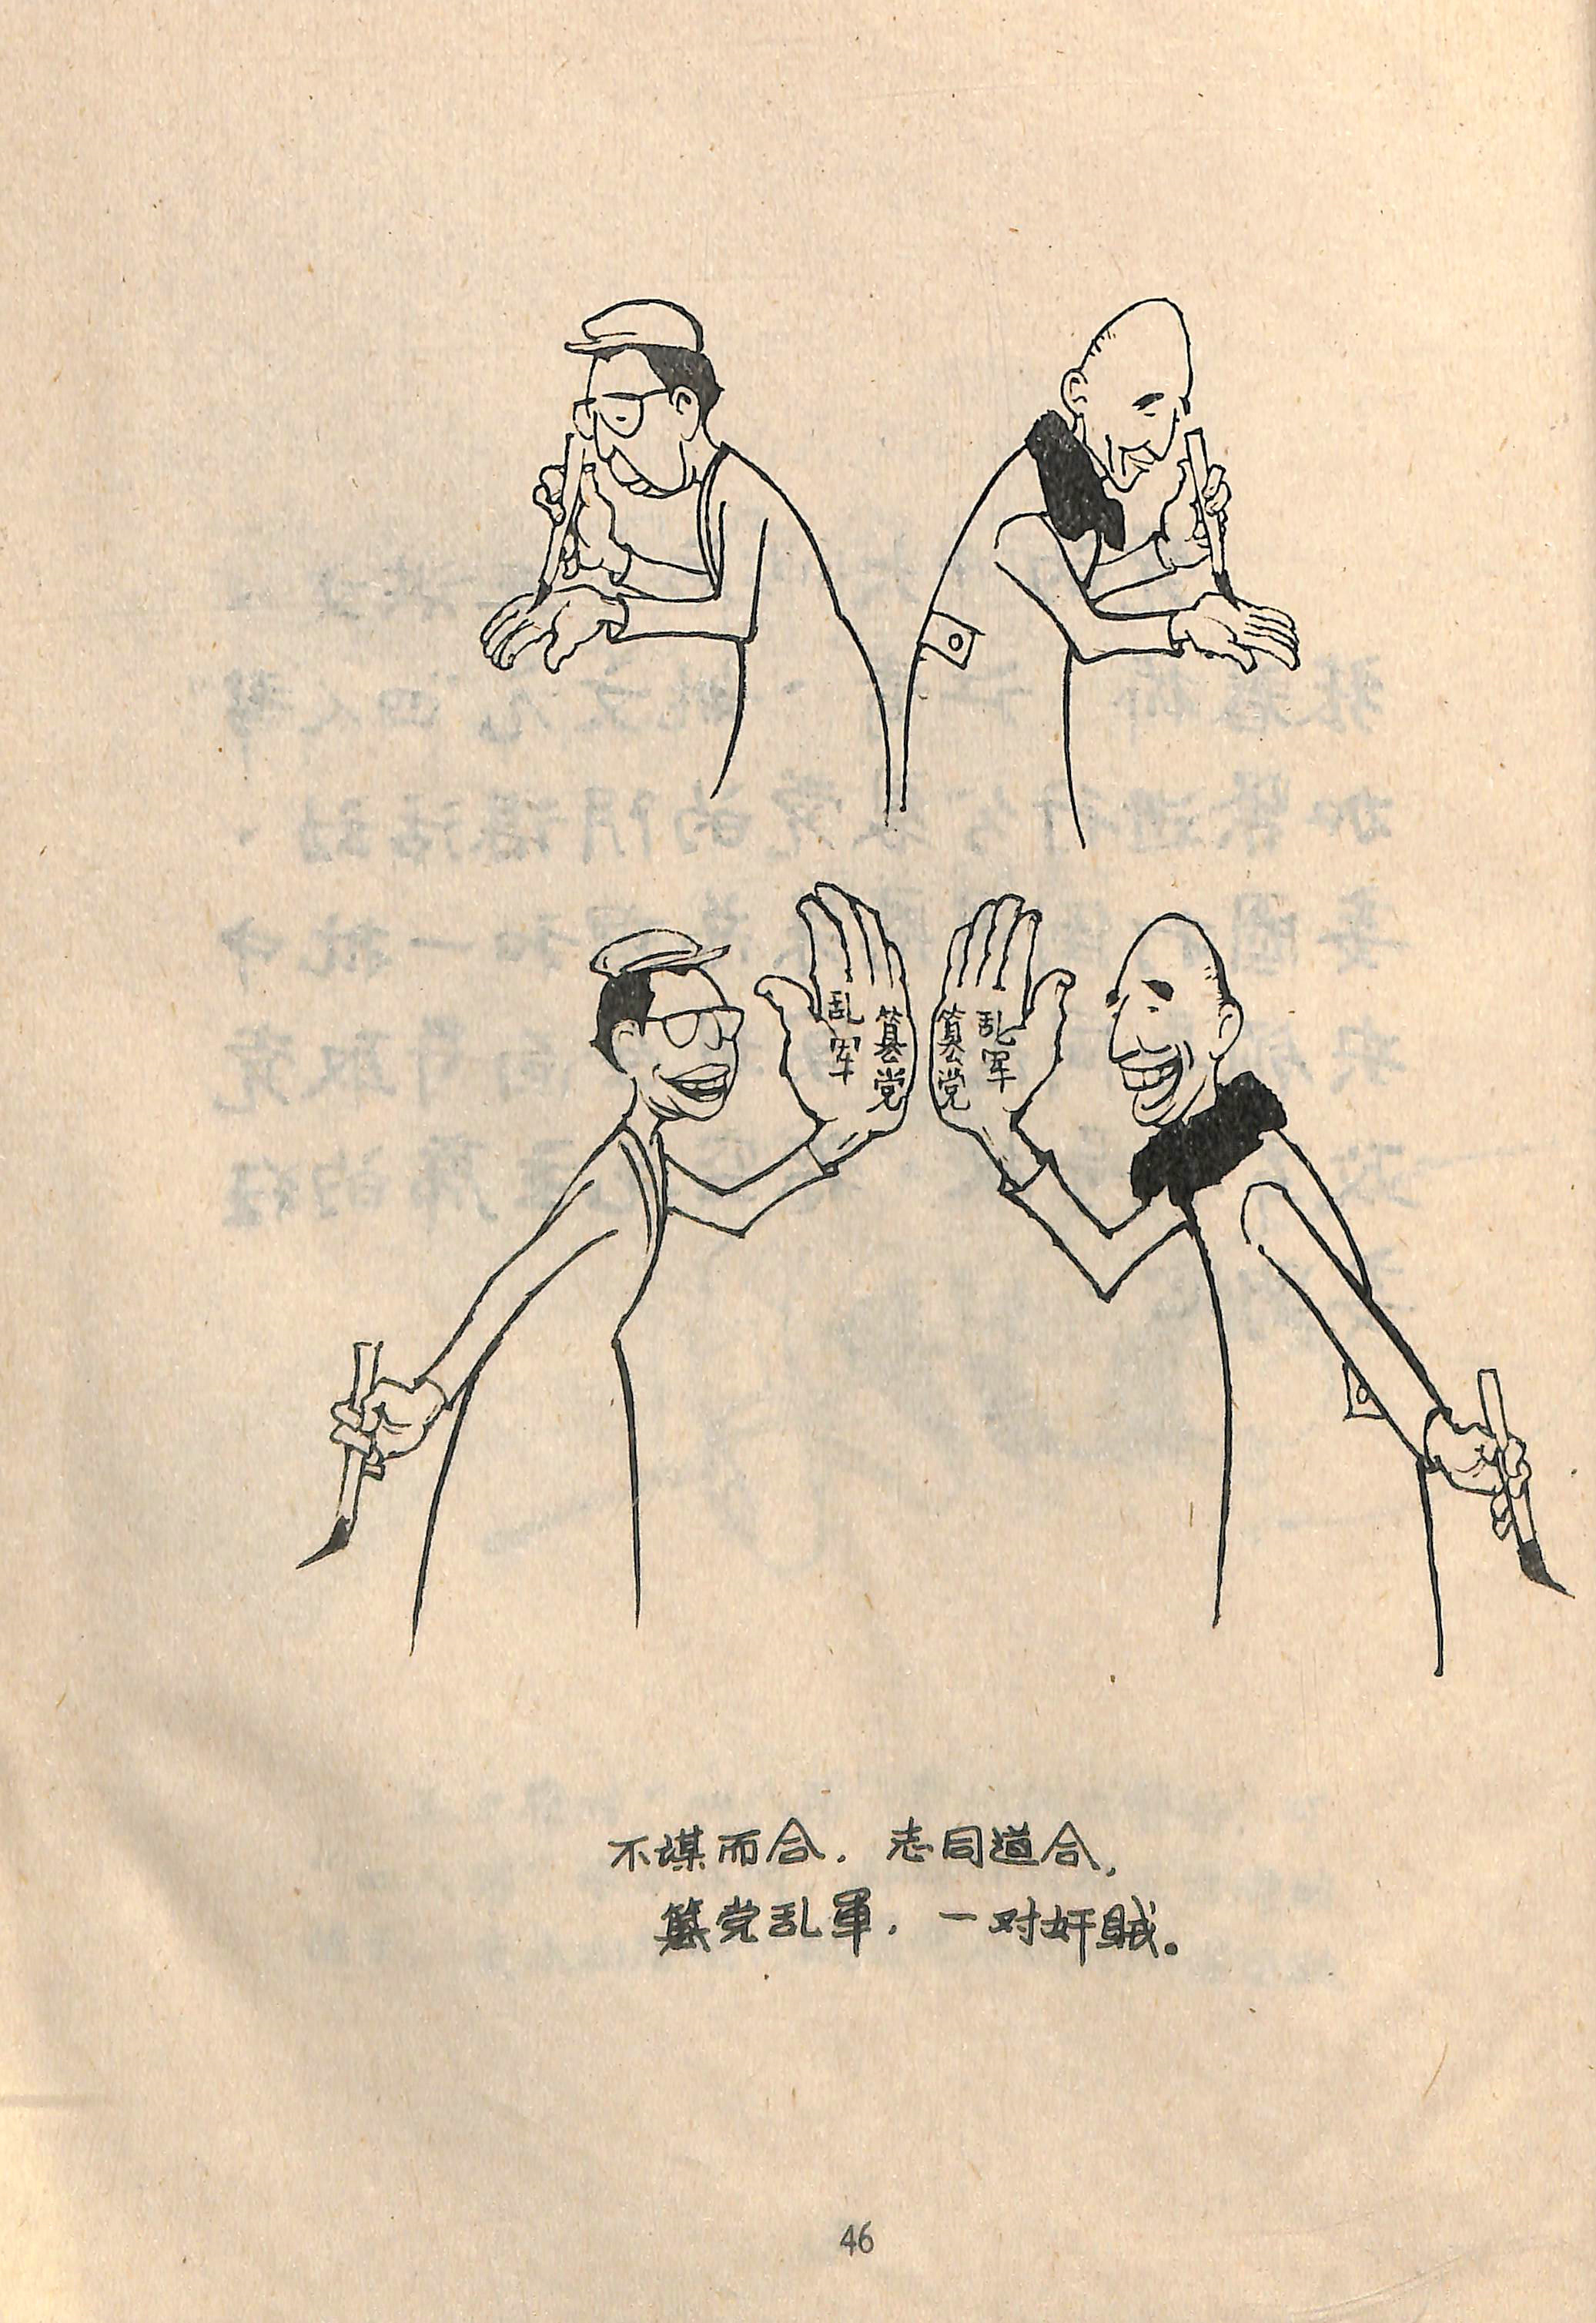 篡党
乱军
篡党
乱军
不谋而合，志同道合，
篡党乱軍，一对奸贼。
46